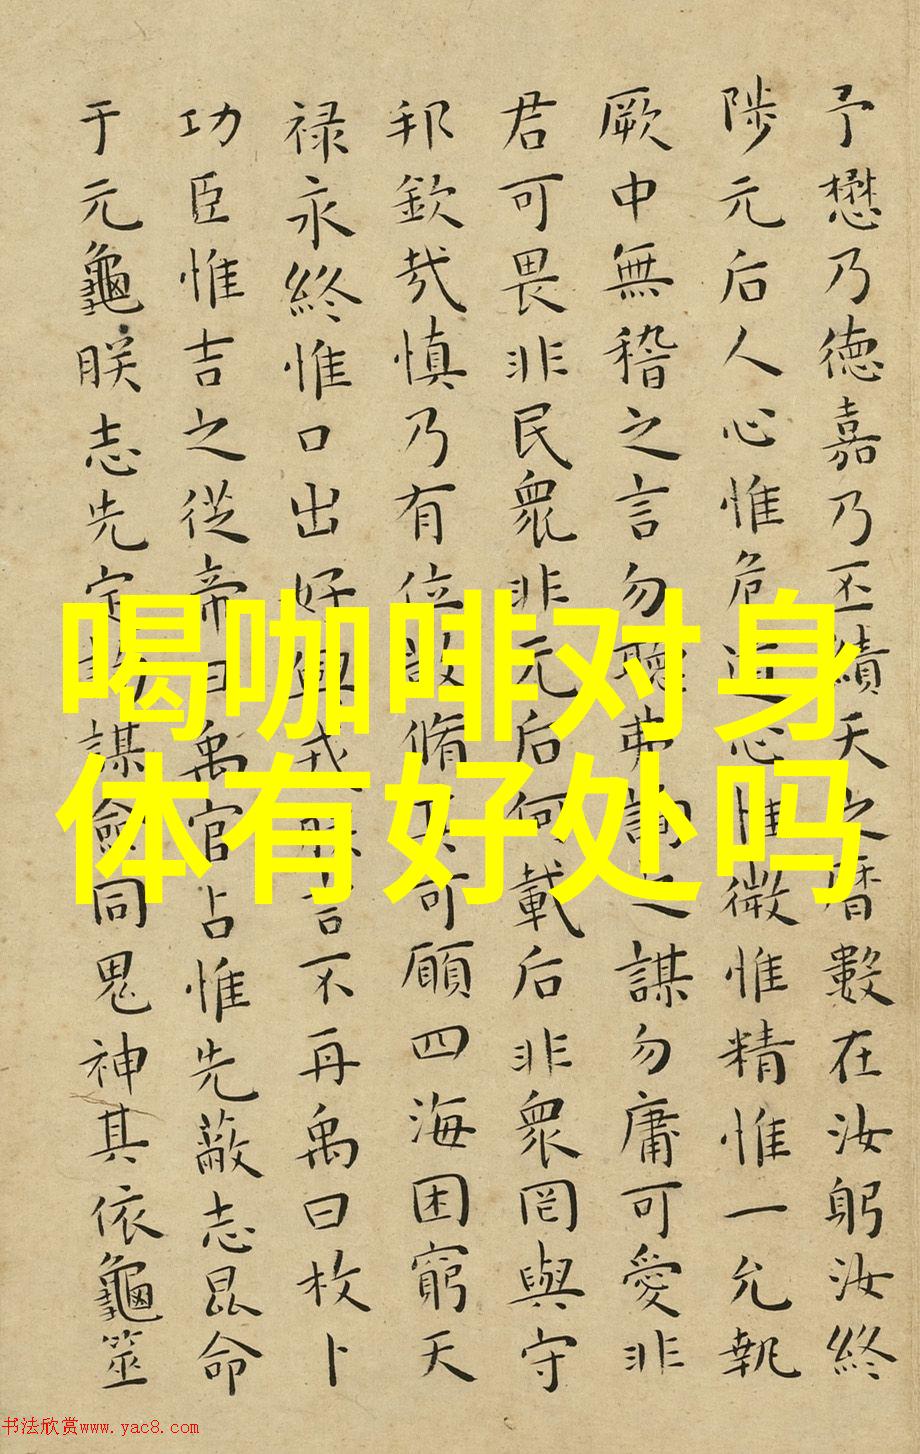 予懋乃德嘉乃丕績天之曆數在汝躬汝終
陟元后人心惟危道心惟微惟精惟一允執
厥中無稽之言勿聽弗詢之謀勿庸可愛非
君可畏非民衆非元后何載后非衆罔與守
邦欽哉慎乃有位敬脩其可願四海困窮天
禄永終惟口出好興戎朕言不再禹曰枚卜
功臣惟吉之從帝曰禹官占惟先蔽志昆命
于元龜朕志先定詢謀僉同鬼神其依龜筮
喝咖啡对身
体有好处吗
书法欣赏www.yac8.com